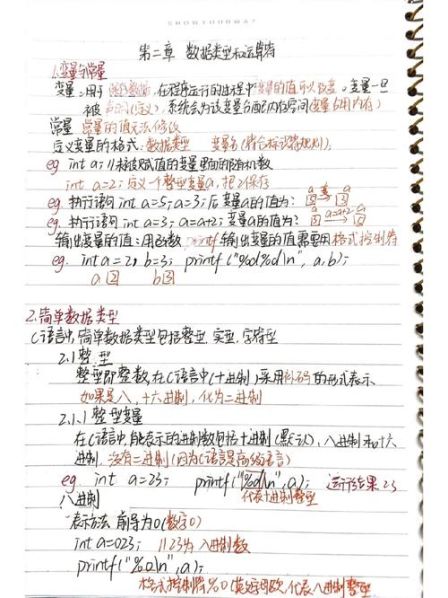 SHOWYOURWAY
第二章 数据类型和运算符
1.变量与常量
变量:用于储存数据,在程序运行的过程中变量的值可以改变,变量一旦
被命名(定义),系统会为该变量分配内存空间(变量占用内存)
常量 常量的值无法修改
定义变量的格式:数据类型 变量名(符合标识符规则);
eg int a; //未被赋值的变量里面的随机数
int a=2;定义一个整型变量a,把2保存
eg 执行语句 int a=5; a=3;后变量a的值为:
eg. 执行语句 int a=3; a=a+2; 变量a的值为?
输出变量的值:用函数 printf 输出变量的值需要用格式控制符
eg. int a=2, b=3; printf("%d%d\n", a,b);
a 2 b 3
2.简单数据类型
C语言中,简单数据类型包括整型,实型,字符型
2.1 整型
整型即整数,在C语言中(十进制)采用补码的形式表示
如果是八,十六进制,化为二进制
2.1.1 整型变量
在C语言中,能表示的进制数包括十进制(默认),八进制和十六
进制,没有二进制(因为C语言是高级语言)
eg int a=23; printf("%d\n",a); 运行结果23
八进制 代表十进制整型
表示方法 前导为0(数字0)
int a=023; //23为八进制数
printf("%o\n",a);
格式控制符%o(英语字母o),代表八进制整型